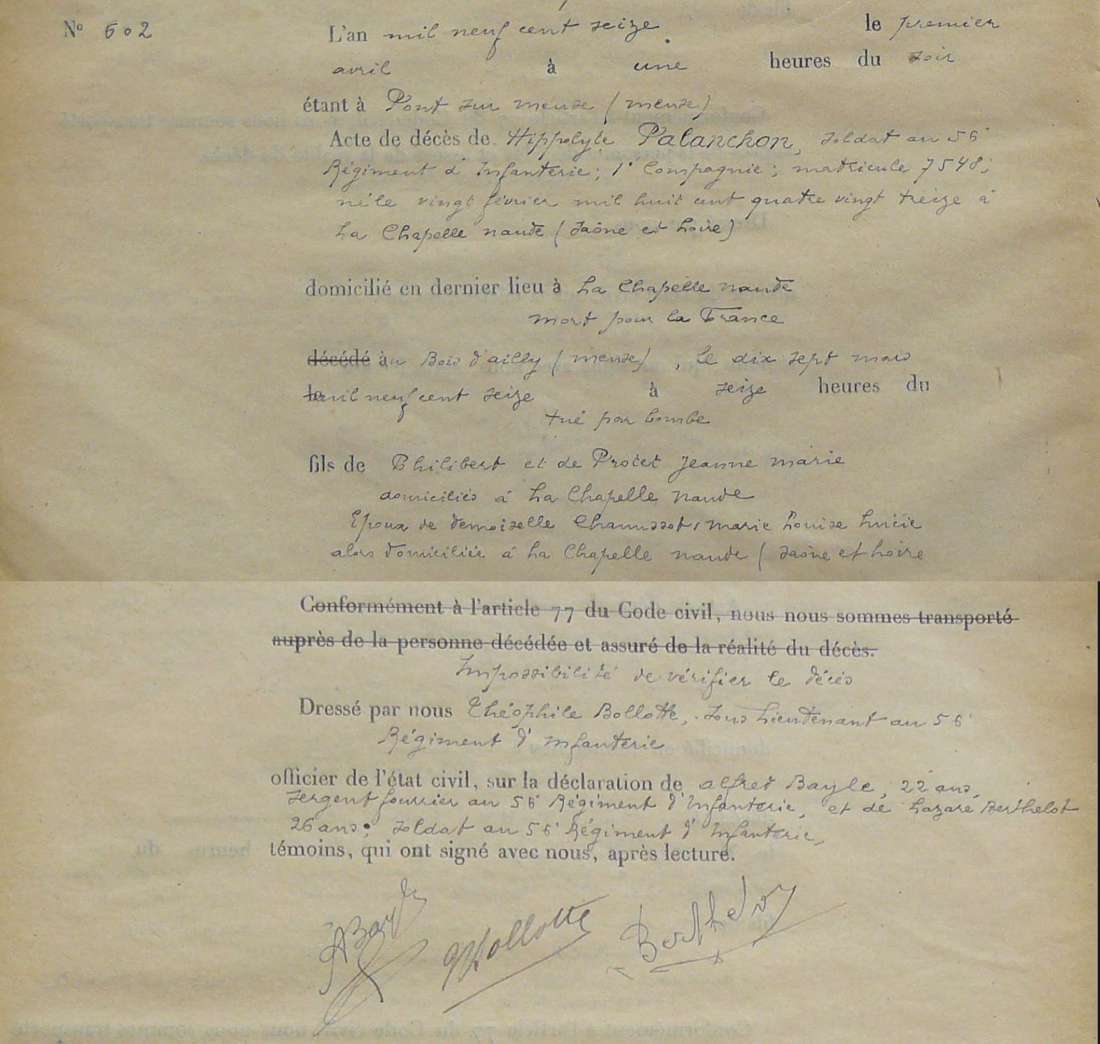 N° 602 L'an mil neuf cent seize le premier
avril à une heures du soir
étant à Pont sur meuse (meuse)
Acte de décès de Hippolyte Palanchon, soldat au 56e
Régiment d'Infanterie; 1e Compagnie; matricule 7548;
né le vingt février mil huit cent quatre vingt treize à
La Chapelle naude (Saône et Loire)
domicilié en dernier lieu à La Chapelle naude
mort pour la France
décédé au Bois d'ailly (meuse), le dix sept mars
le mil neuf cent seize à seize heures du
tué par bombe
fils de Philibert et de Protet Jeanne marie
domiciliés à La Chapelle naude
Epoux de demoiselle Chaussot, marie Louise Lucie
alors domiciliée à La Chapelle naude (Saône et Loire
Conformément à l'article 77 du Code civil, nous nous sommes transporté
auprès de la personne décédée et assuré de la réalité du décès.
Impossibilité de vérifier le décès
Dressé par nous Théophile Bollotte, Sous Lieutenant au 56e
Régiment d'Infanterie
officier de l'état civil, sur la déclaration de alfred Bayle, 22 ans,
Sergent fourrier au 56e Régiment d'Infanterie, et de Lazare Berthelot
26 ans, soldat au 56e Régiment d'Infanterie,
témoins, qui ont signé avec nous, après lecture.
ABayle Bollotte Berthelot